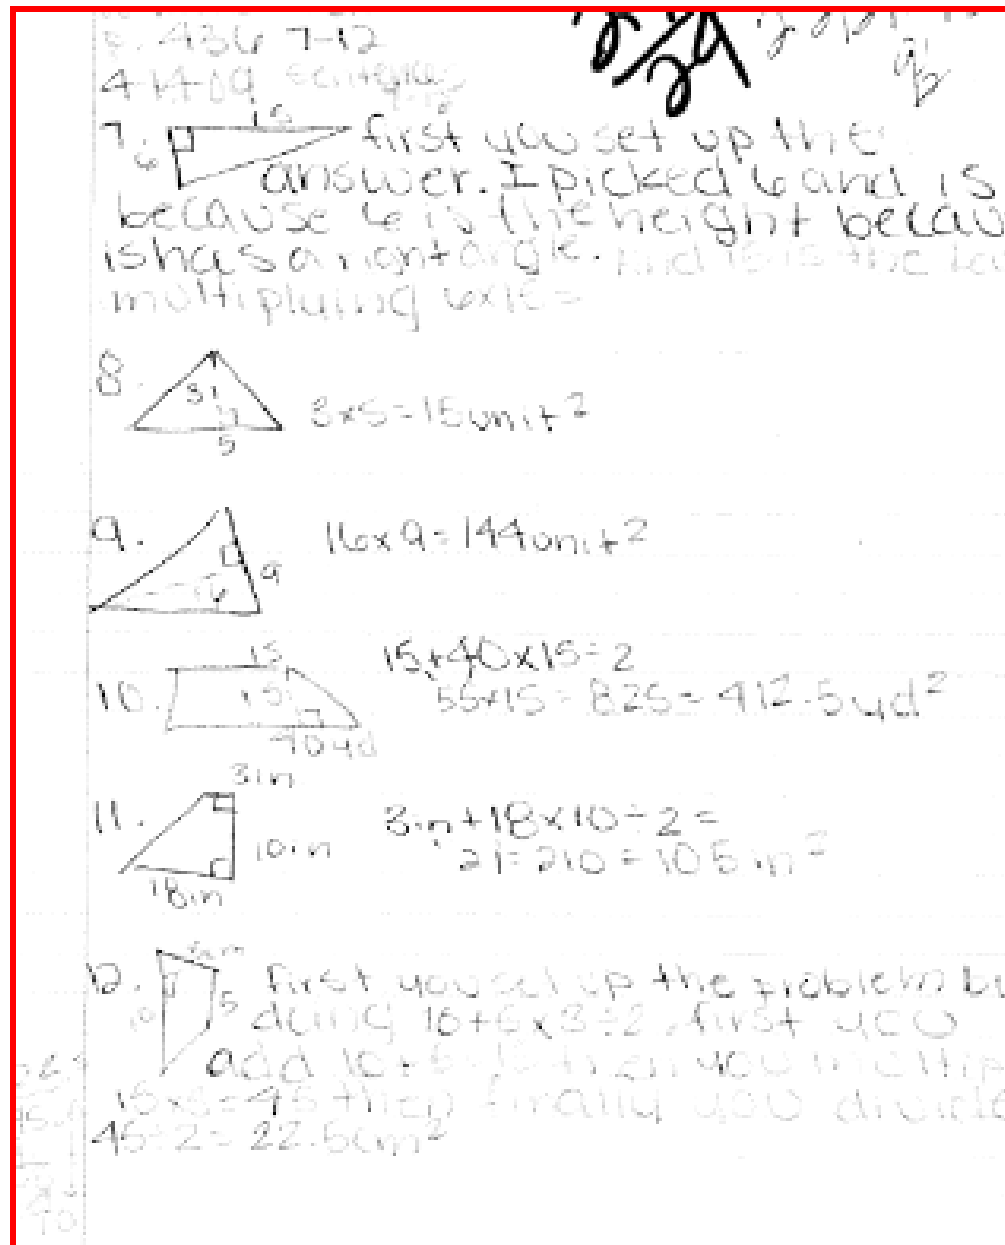 p. 436 7-12
4-14-09
7. 15
6
first you set up the
answer. I picked 6 and 15
because 6 is the height becau
ishas a right angle. And 15 is the ba
multipluing 6x15=
8. 3
5
3x5=15unit²
9. 16 9
16x9=144unit²
10. 15
15
40yd
15+40x15÷2
55x15=825=412.5yd²
11. 3in
10in
18in
3in+18x10÷2=
21=210=105in²
12. 5
10
First you set up the problem b
doing 10+5x3÷2. first you
add 10+5=15 then you multip
15x3=45 then finally you divide
45÷2=22.5cm²